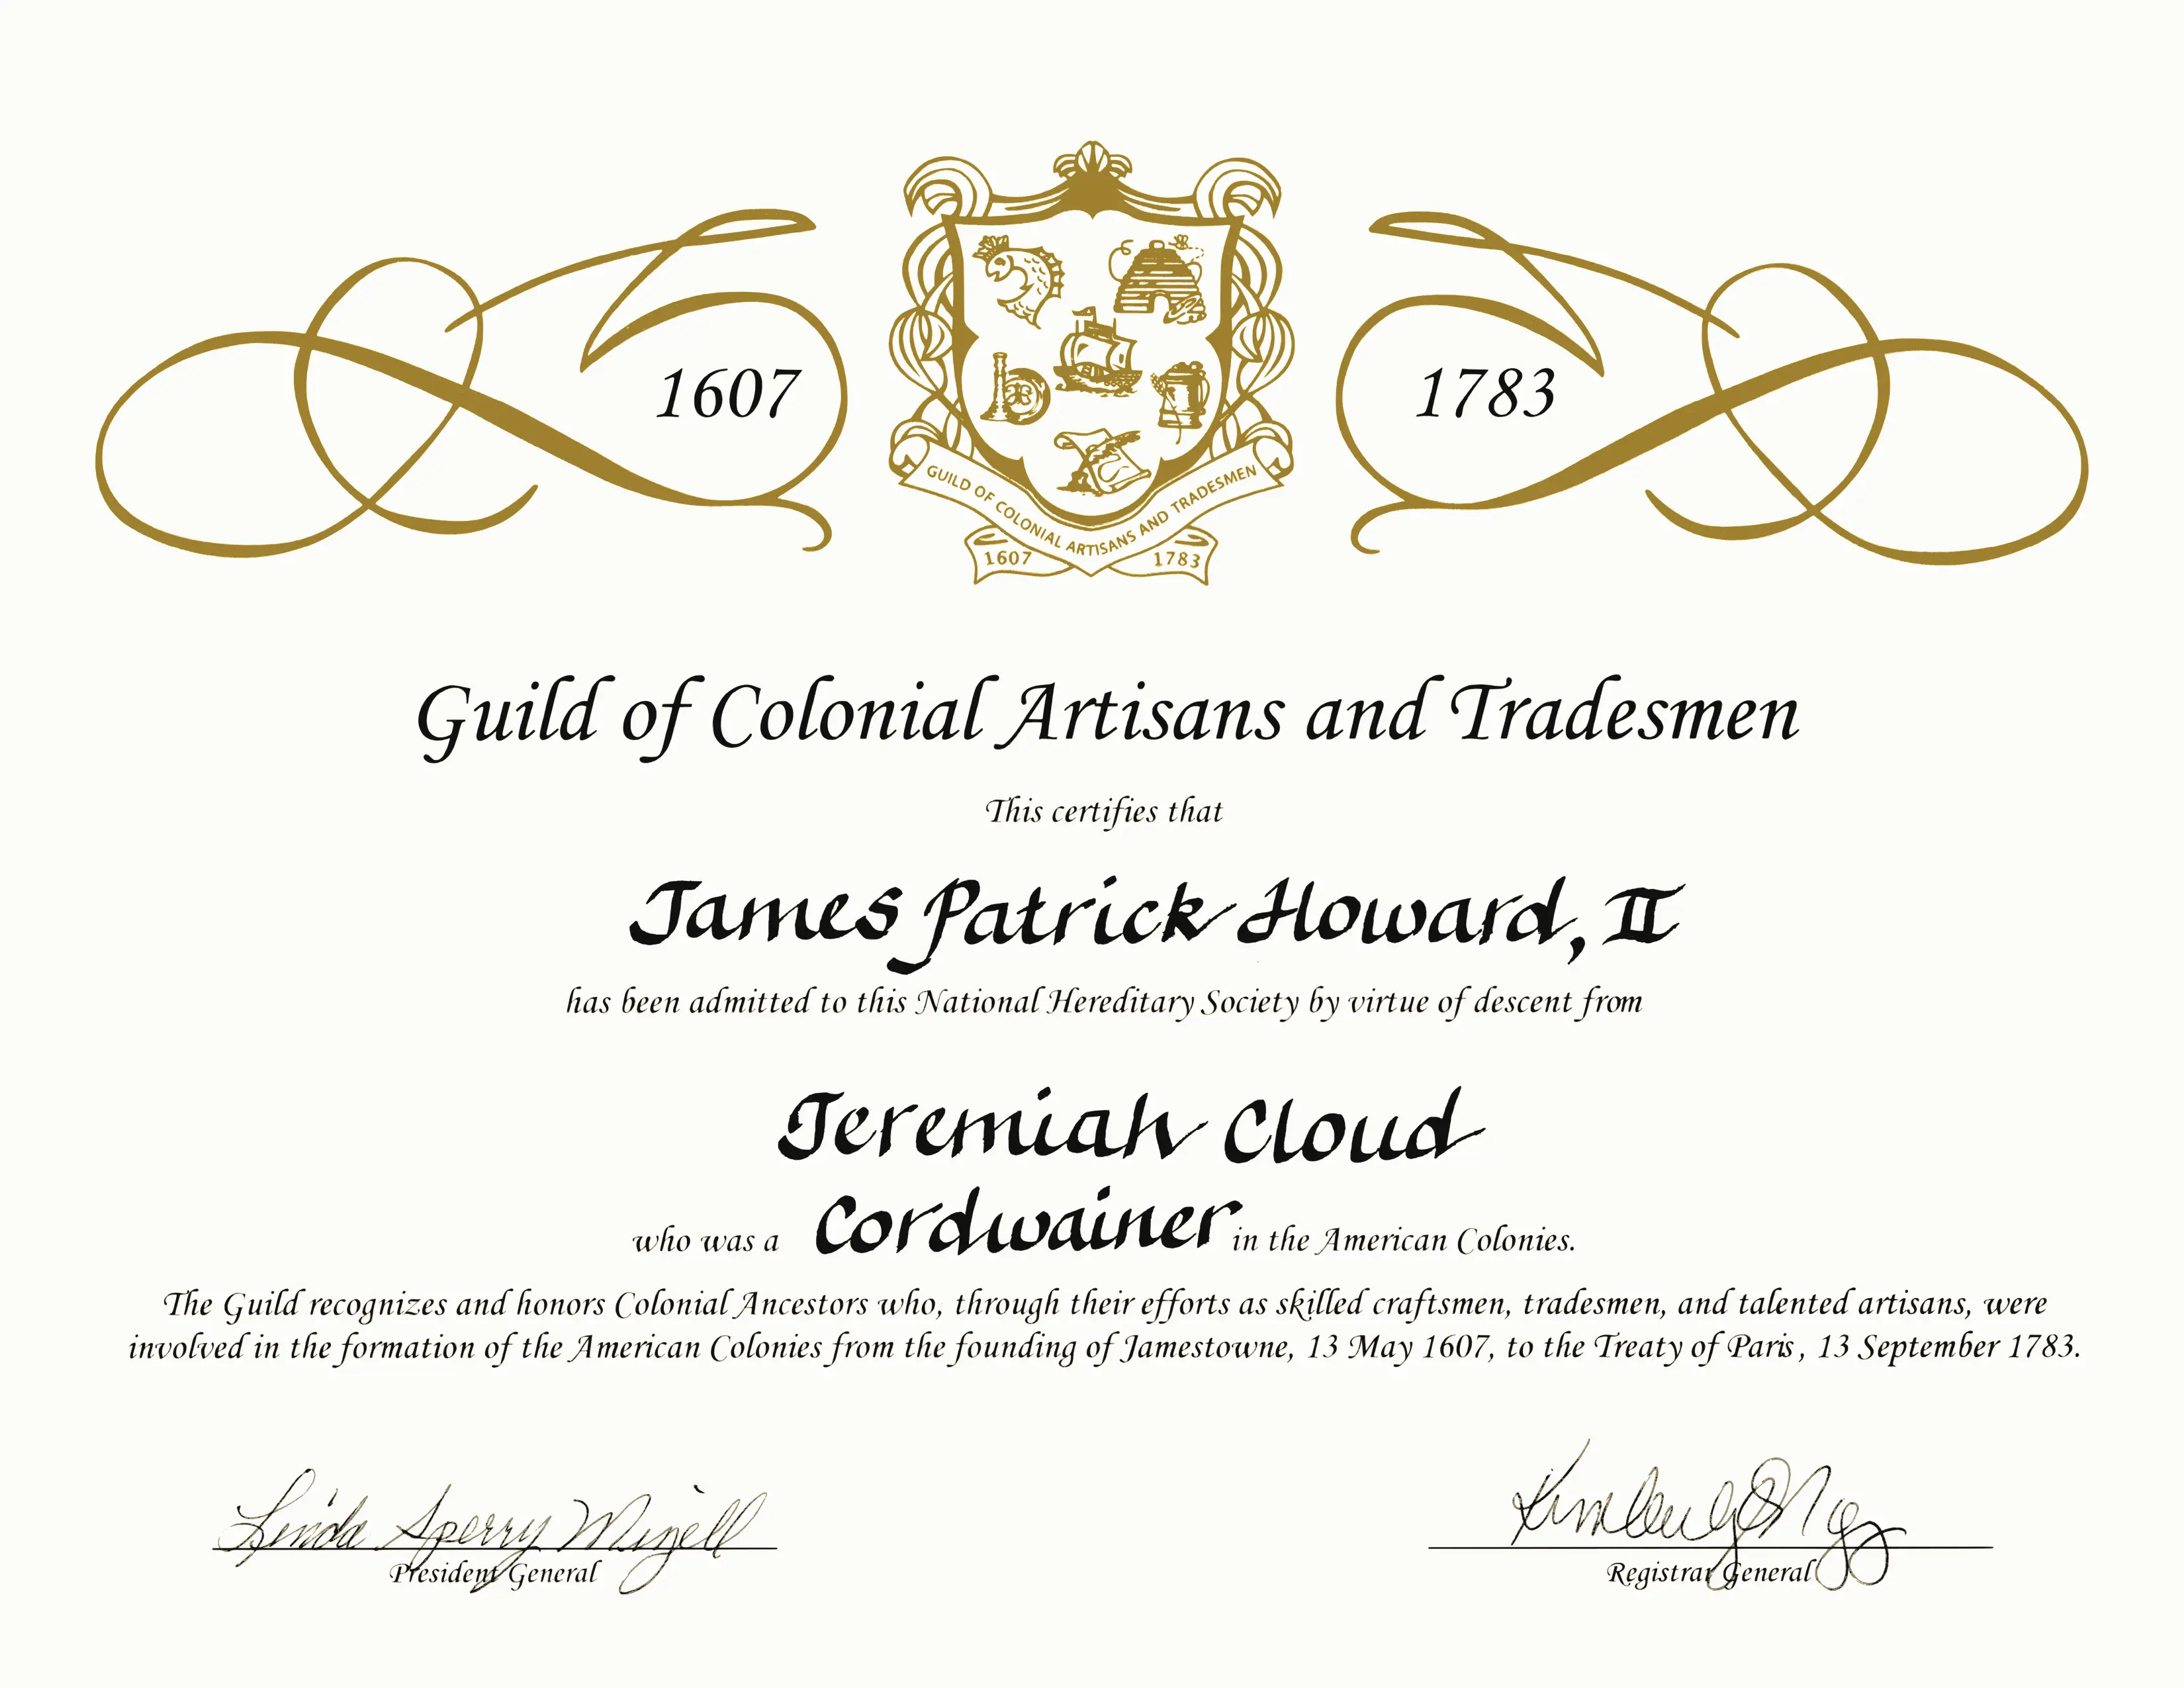 1607
1783
GUILD OF COLONIAL ARTISANS AND TRADESMEN
1607
1783
Guild of Colonial Artisans and Tradesmen
This certifies that
James Patrick Howard, II
has been admitted to this National Hereditary Society by virtue of descent from
Jeremiah Cloud
who was a Cordwainer in the American Colonies.
The Guild recognizes and honors Colonial Ancestors who, through their efforts as skilled craftsmen, tradesmen, and talented artisans, were
involved in the formation of the American Colonies from the founding of Jamestowne, 13 May 1607, to the Treaty of Paris, 13 September 1783.
Linda Sperry Mizell
President General
Registrar General